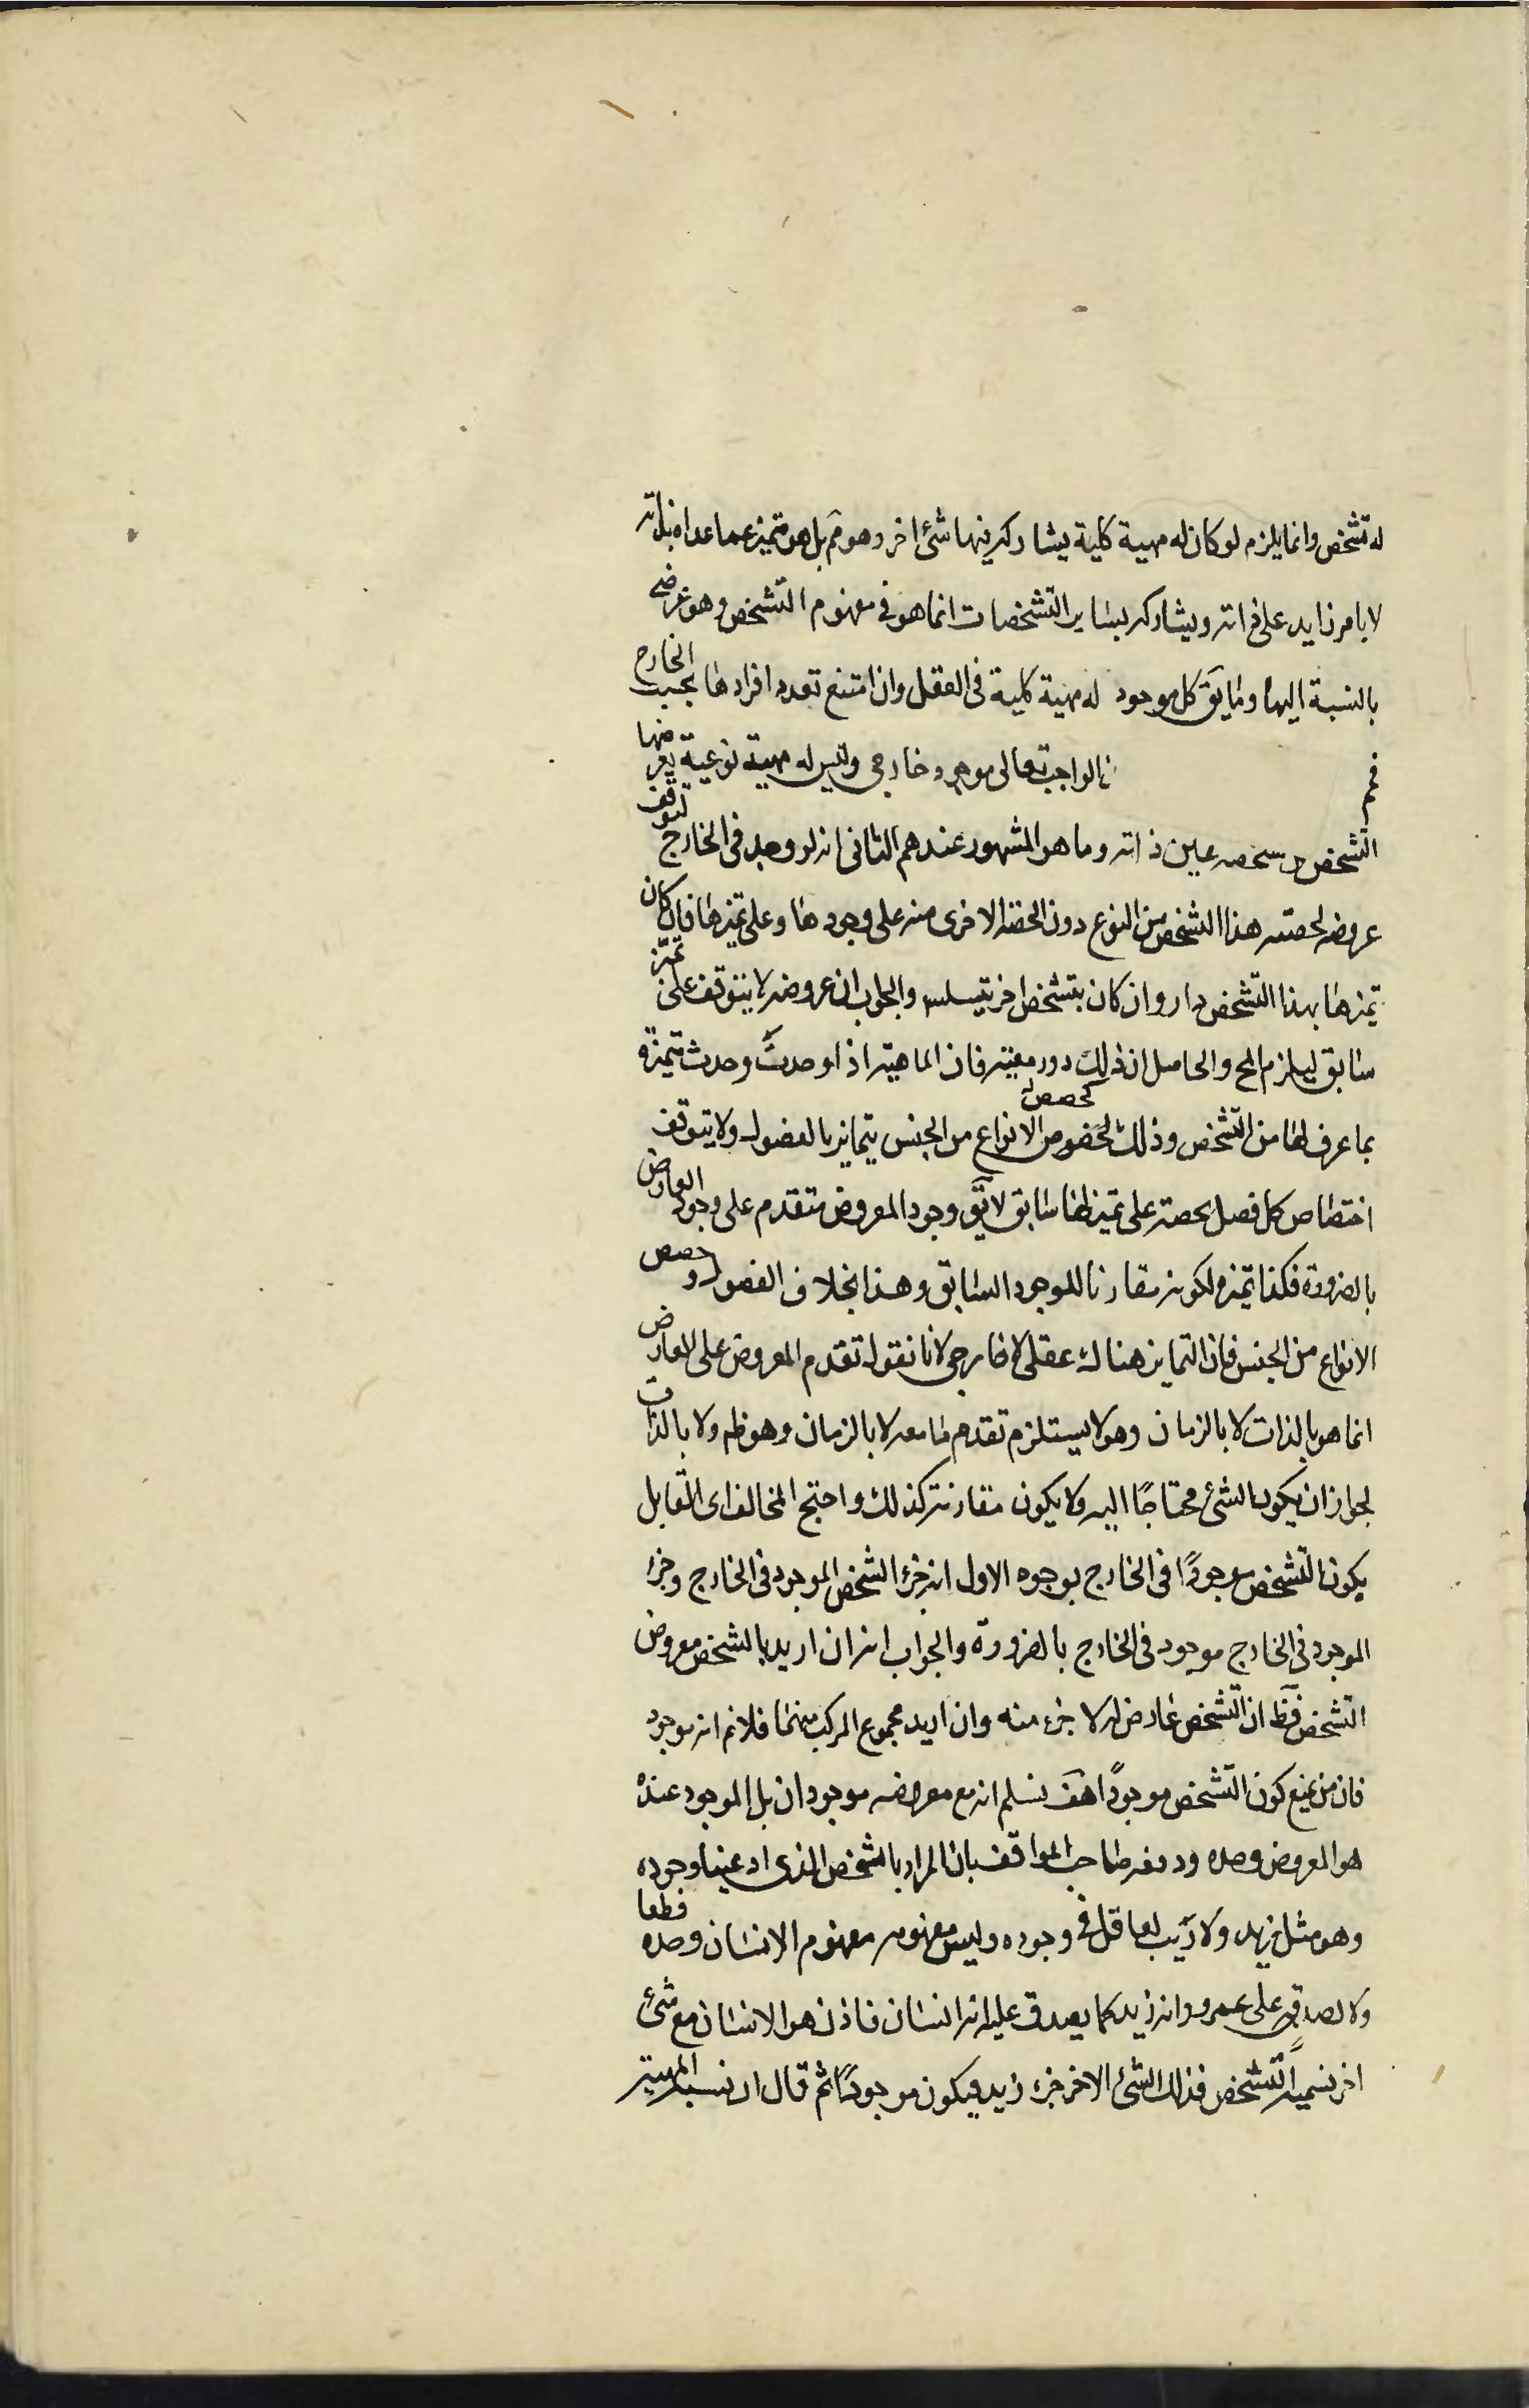 له تشخص وانما يلزم لو كان له مهية كلية يشاركه فيها شئ اخر وهو مم بل هو متميز عما عداه بذاته
لا بامر زايد على ذاته ويشاركه بساير التشخصات انما هو في مفهوم التشخص وهو عرضى
بالنسبة اليها وما يق كل موجود له مهية كلية فى العقل وان امتنع تعدد افرادها بحسب الخارج
فمم فالواجب تعالى موجود خارجى وليس له مهية نوعية يعرضها
التشخص وتشخصه عين ذاته وما هو المشهور عندهم الثانى انه لو وجد فى الخارج لتوقف
عروضه لحصة هذا الشخص من النوع دون الحصة الاخرى منه على وجودها وعلى تميزها فان كان
تميزها بهذا التشخص دار وان كان بتشخص اخر يتسلس والجواب ان عروضه لا يتوقف على تميز
سابق ليلزم المح والحاصل ان ذلك دور معية فان الماهية اذا وجدت وجدت متميزة
بما عرف لها من التشخص وذلك كحصص الانواع من الجنس يتمايز بالفصول ولا يتوقف
اختصاص كل فصل بحصة على تميز لها سابق لا يق وجود المعروض متقدم على وجود العارض
بالضرورة فكذا تميزه لكونه مقارنا للوجود السابق وهذا بخلاف الفصول وحصص
الانواع من الجنس فان التمايز هناك عقلى لا خارجى لانا نقول تقدم المعروض على العارض
انما هو بالذات لا بالزمان وهو لا يستلزم تقدم ما معه لا بالزمان وهو ظم ولا بالذات
لجواز ان يكون الشئ محتاجًا اليه ولا يكون مقارنته كذلك واحتج المخالف اى القايل
يكون التشخص موجودًا فى الخارج بوجوه الاول انه جزء الشخص الموجود فى الخارج وجزء
الموجود فى الخارج موجود فى الخارج بالضرورة والجواب انه ان اريد بالشخص معروض
التشخص فظ ان التشخص عارض له لا جزء منه وان اريد مجموع المركب منهما فلا نم انه موجود
فان من يمنع كون التشخص موجودًا كيف يسلم انه مع معروضه موجود ان بل الموجود عنده
هو المعروض وحده ودفعه صاحب المواقف بان المراد بالشخص الذى ادعينا وجوده
وهو مثل زيد ولا ريب لعاقل فى وجوده وليس مفهومه مفهوم الانسان وحده قطعا
ولا لصدق على عمرو انه زيد كما يصدق عليه انه انسان فاذن هو الانسان مع شئ
اخر نسميه التشخص فذلك الشئ الاخر جزء زيد فيكون موجودًا ثم قال ان نسبة المهية